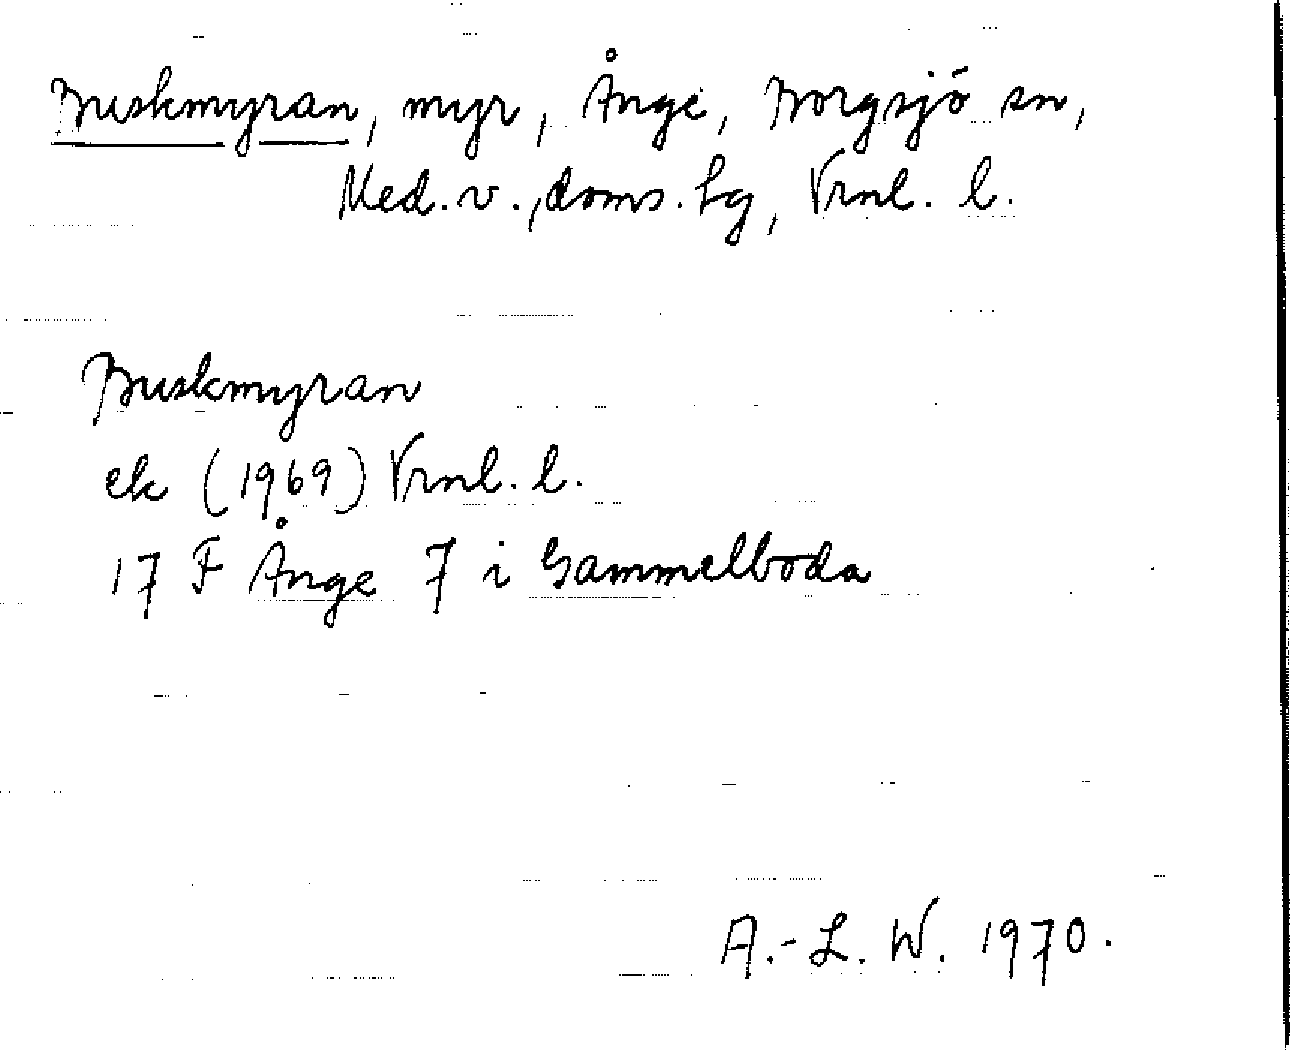 Buskmyran, myr, Ånge, Borgsjö sn,
Med. v., doms. lg, Vrnl. l.
Buskmyran
ek (1969) Vrnl. l.
17 F Ånge 7 i Gammelboda
A.-L. W. 1970.